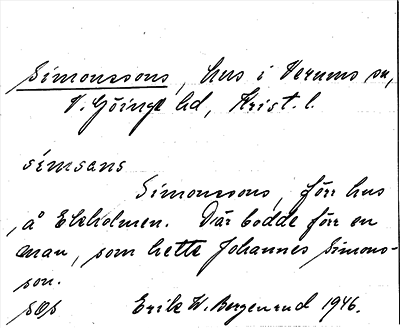 Simonssons, hus i Verums sn,
V. Göinge hd, Krist. l.
simsans
Simonssons, förr hus
å Ekholmen. Där bodde förr en
man, som hette Johannes Simons-
son.
Erik W. Bergenrud 1946.